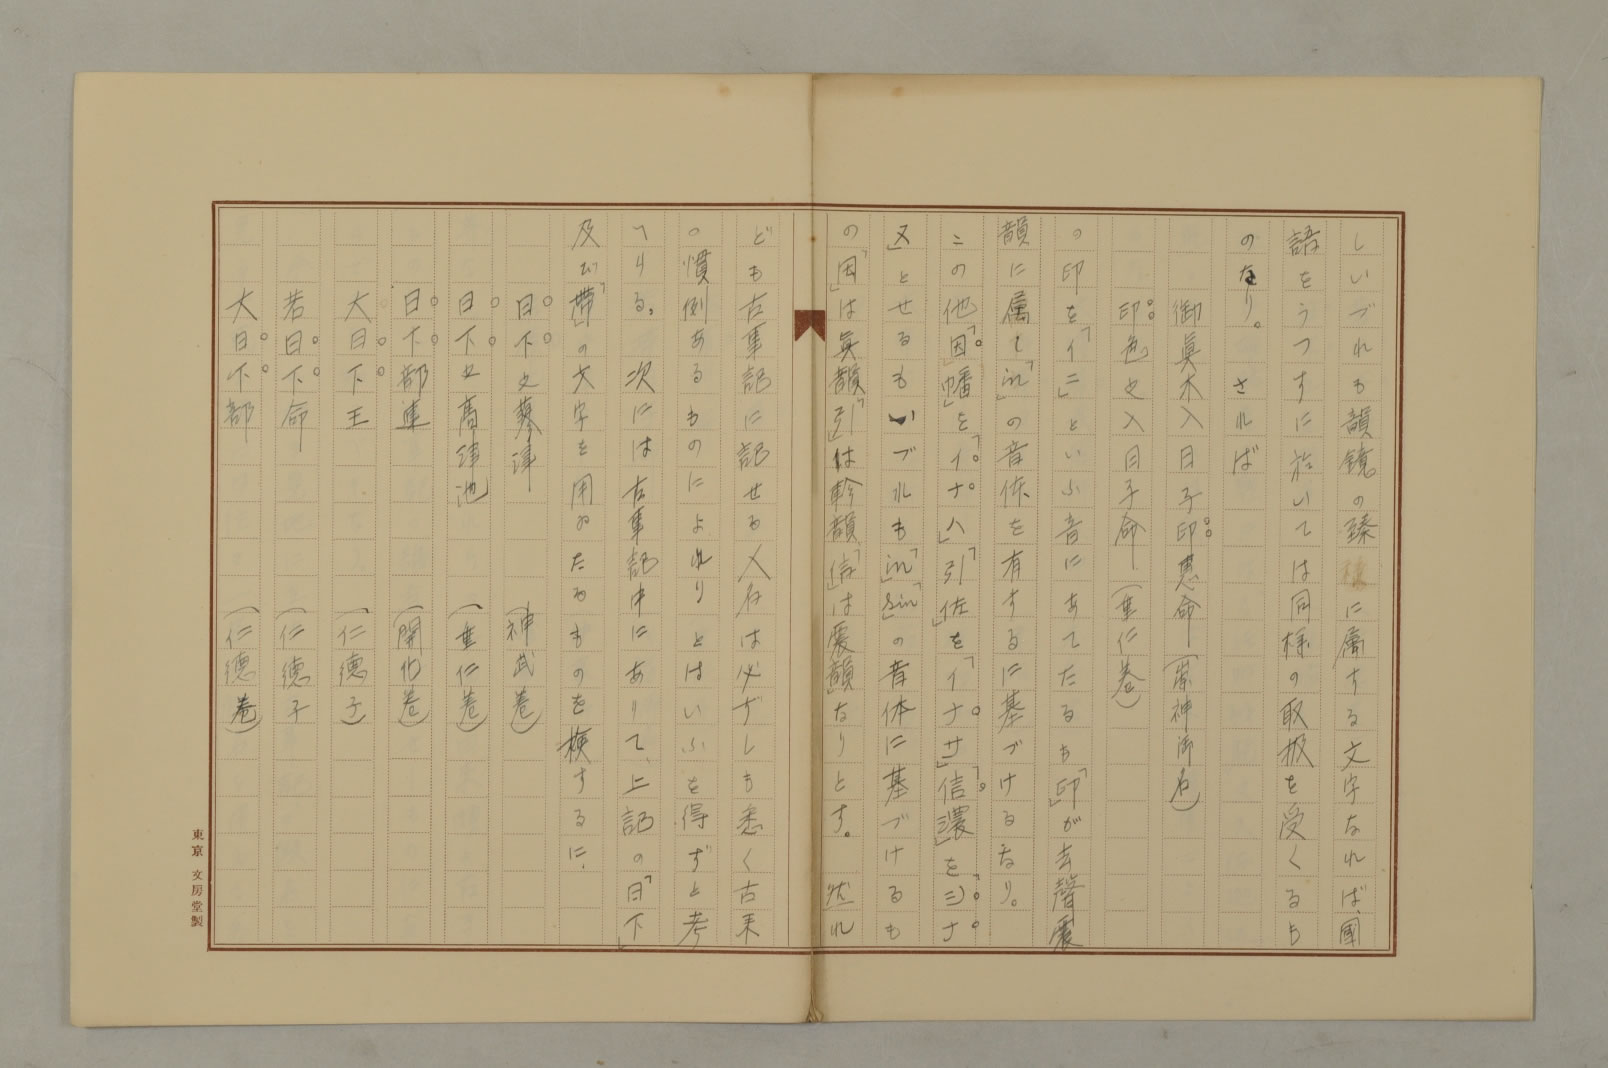 しいづれも韻鏡の臻に属する文字なれば、國
語をうつすに於いては同様の取扱を受くるも
のなり。されば
御眞木入日子印恵命(崇神御名)
印色之入日子命(垂仁巻)
の印を「イニ」といふ音にあてたるも「印」が去聲震
韻に属し「in」の音体を有するに基づけるなり。
この他「因幡」を「イナハ」「引佐」を「イナサ」「信濃」を「シナ
ヌ」とせるもいづれも「in」「sin」の音体に基づけるも
の「因」は眞韻「引」は軫韻「信」は震韻なりとす。然れ
ども古事記に記せる人名は必ずしも悉く古来
の慣例あるものによれりとはいふを得ずと考
へりる。次には古事記中にありて、上記の「日下」
及び「帯」の文字を用ゐたるものを検するに、
日下之蓼津(神武巻)
日下之高津池(垂仁巻)
日下部連(開化巻)
大日下王(仁徳子)
若日下命(仁徳子
大日下部(仁徳巻)
東京 文房堂製